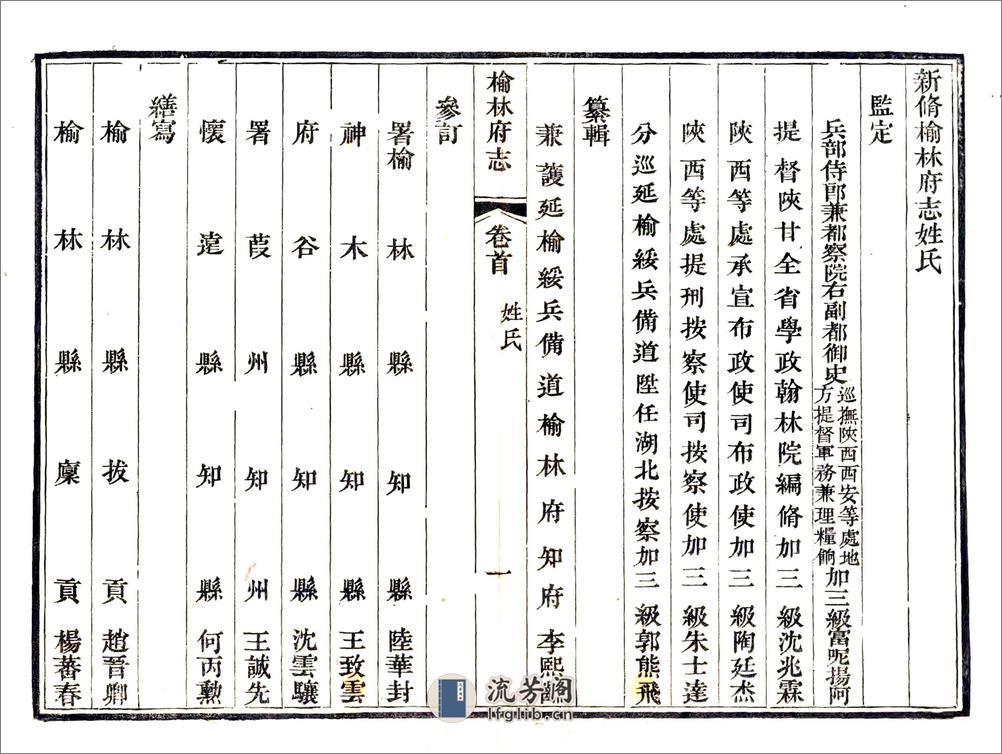 新脩榆林府志姓氏
監定
兵部侍郎兼都察院右副都御史巡撫陝西西安等處地方提督軍務兼理糧餉加三級富呢揚阿
提督陝甘全省學政翰林院編脩加三級沈兆霖
陝西等處承宣布政使司布政使加三級陶廷杰
陝西等處提刑按察使司按察使加三級朱士達
分巡延榆綏兵備道陞任湖北按察加三級郭熊飛
纂輯
兼護延榆綏兵備道榆林府知府李熙
榆林府志 卷首 姓氏 一
參訂
署榆林縣知縣陸華封
神木縣知縣王致雲
府谷縣知縣沈雲驤
署葭州知州王誠先
懷遠縣知縣何丙勲
繕寫
榆林縣拔貢趙晉卿
榆林縣廩貢楊蕃春
流芳閣
lfglib.cn